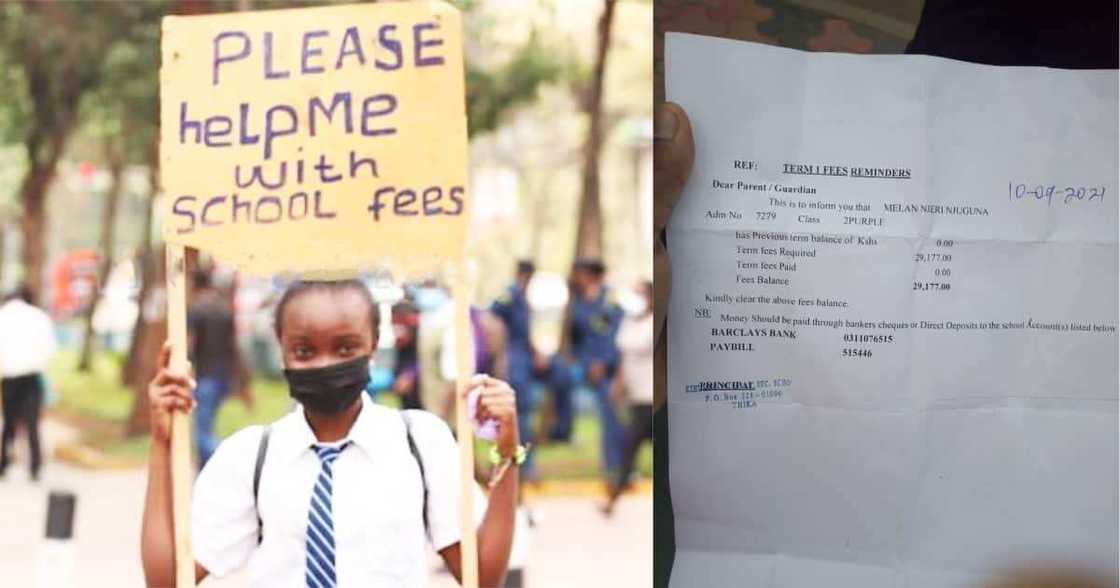 PLEASE
helpMe
with
SCHOOL fees
REF: TERM 1 FEES REMINDERS
10-09-2021
Dear Parent / Guardian
This is to inform you that MELAN NJERI NJUGUNA
Adm No 7279 Class 2PURPLE
has Previous term balance of Kshs 0.00
Term fees Required 29,177.00
Term fees Paid 0.00
Fees Balance 29,177.00
Kindly clear the above fees balance.
NB: Money Should be paid through bankers cheques or Direct Deposits to the school Account(s) listed below
BARCLAYS BANK 0311076515
PAYBILL 515446
PRINCIPAL SEC. SCHO
P. O. Box 128 - 01000
THIKA